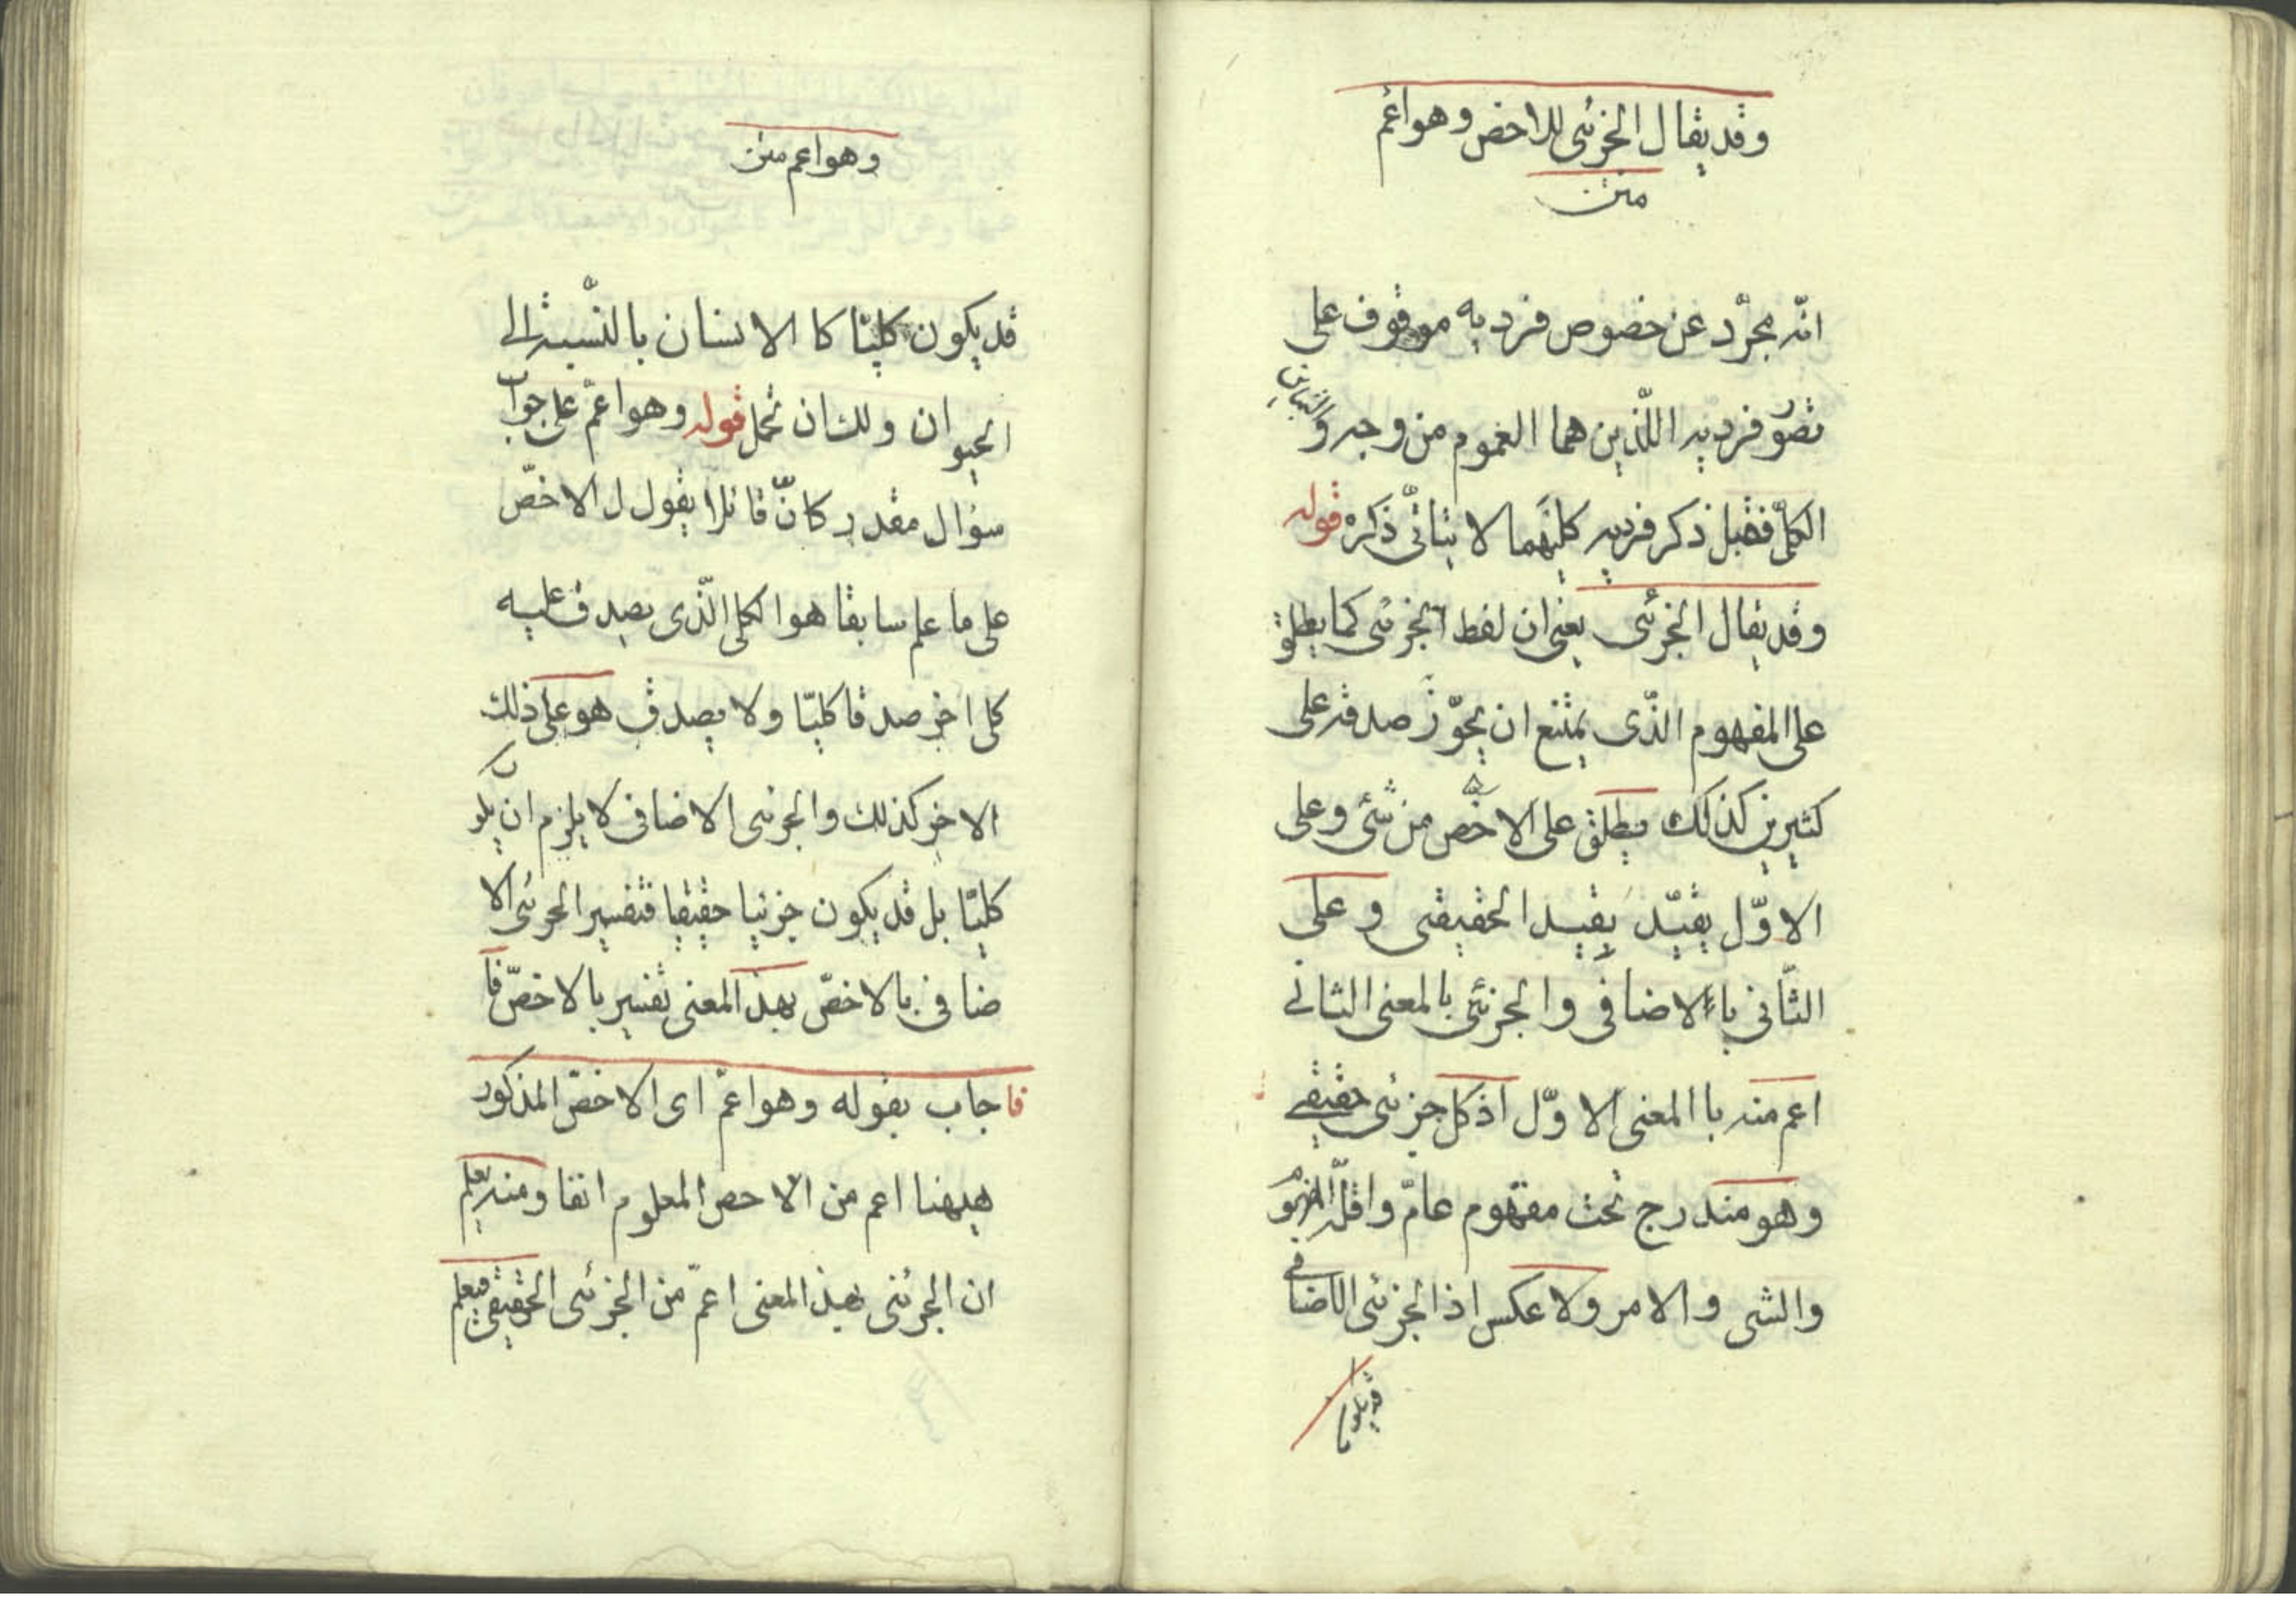 وقد يقال الجزئى للاخص وهو اعم
متن
انّه مجرّد عن خصوص فرديه موقوف على
تصوّر فرديه اللّذين هما العموم من وجه والتباين
الكلّى فقبل ذكر فرديه كليهما لا يتاتّى ذكره قوله
وقد يقال الجزئى يعنى ان لفظ الجزئى كما يطلق
على المفهوم الذّى يمتنع ان يجوّز صدقه على
كثيرين كذلك يطلق على الاخصّ من شئى وعلى
الاوّل يقيّد بقيد الحقيقى وعلى
الثّانى باءلاضافى والجزئى بالمعنى الثانى
اعم منه باالمعنى الاوّل اذ كل جزئى حقيقى
وهو مندرج تحت مفهوم عامّ واقلّه المفهوم
والشى والامر ولا عكس اذ الجزئى الاضافى
قد يكون
وهو اعم متن
قد يكون كليّا كا الانسان بالنّسبة الى
الحيوان ولك ان تحمل قوله وهو اعمّ على جواب
سؤال مقدر كانّ قائلا يقول ل الاخصّ
على ما علم سابقا هو الكلى الذّى يصدق عليه
كلى اخر صدقا كليّا ولا يصدق هو على ذلك
الاخر كذلك والجزئى الاضافى لا يلزم ان يكون
كليّا بل قد يكون جزئيا حقيقيا فتفسير الجزئى الا
ضافى بالاخصّ بهذ المعنى تفسير بالاخصّ فا
فاجاب بقوله وهو اعمّ اى الاخصّ المذكور
هيهنا اعم من الاخص المعلوم انفا ومنه يعلم
ان الجزئى بهذ المعنى اعمّ من الجزئى الحقيقى فيعلم